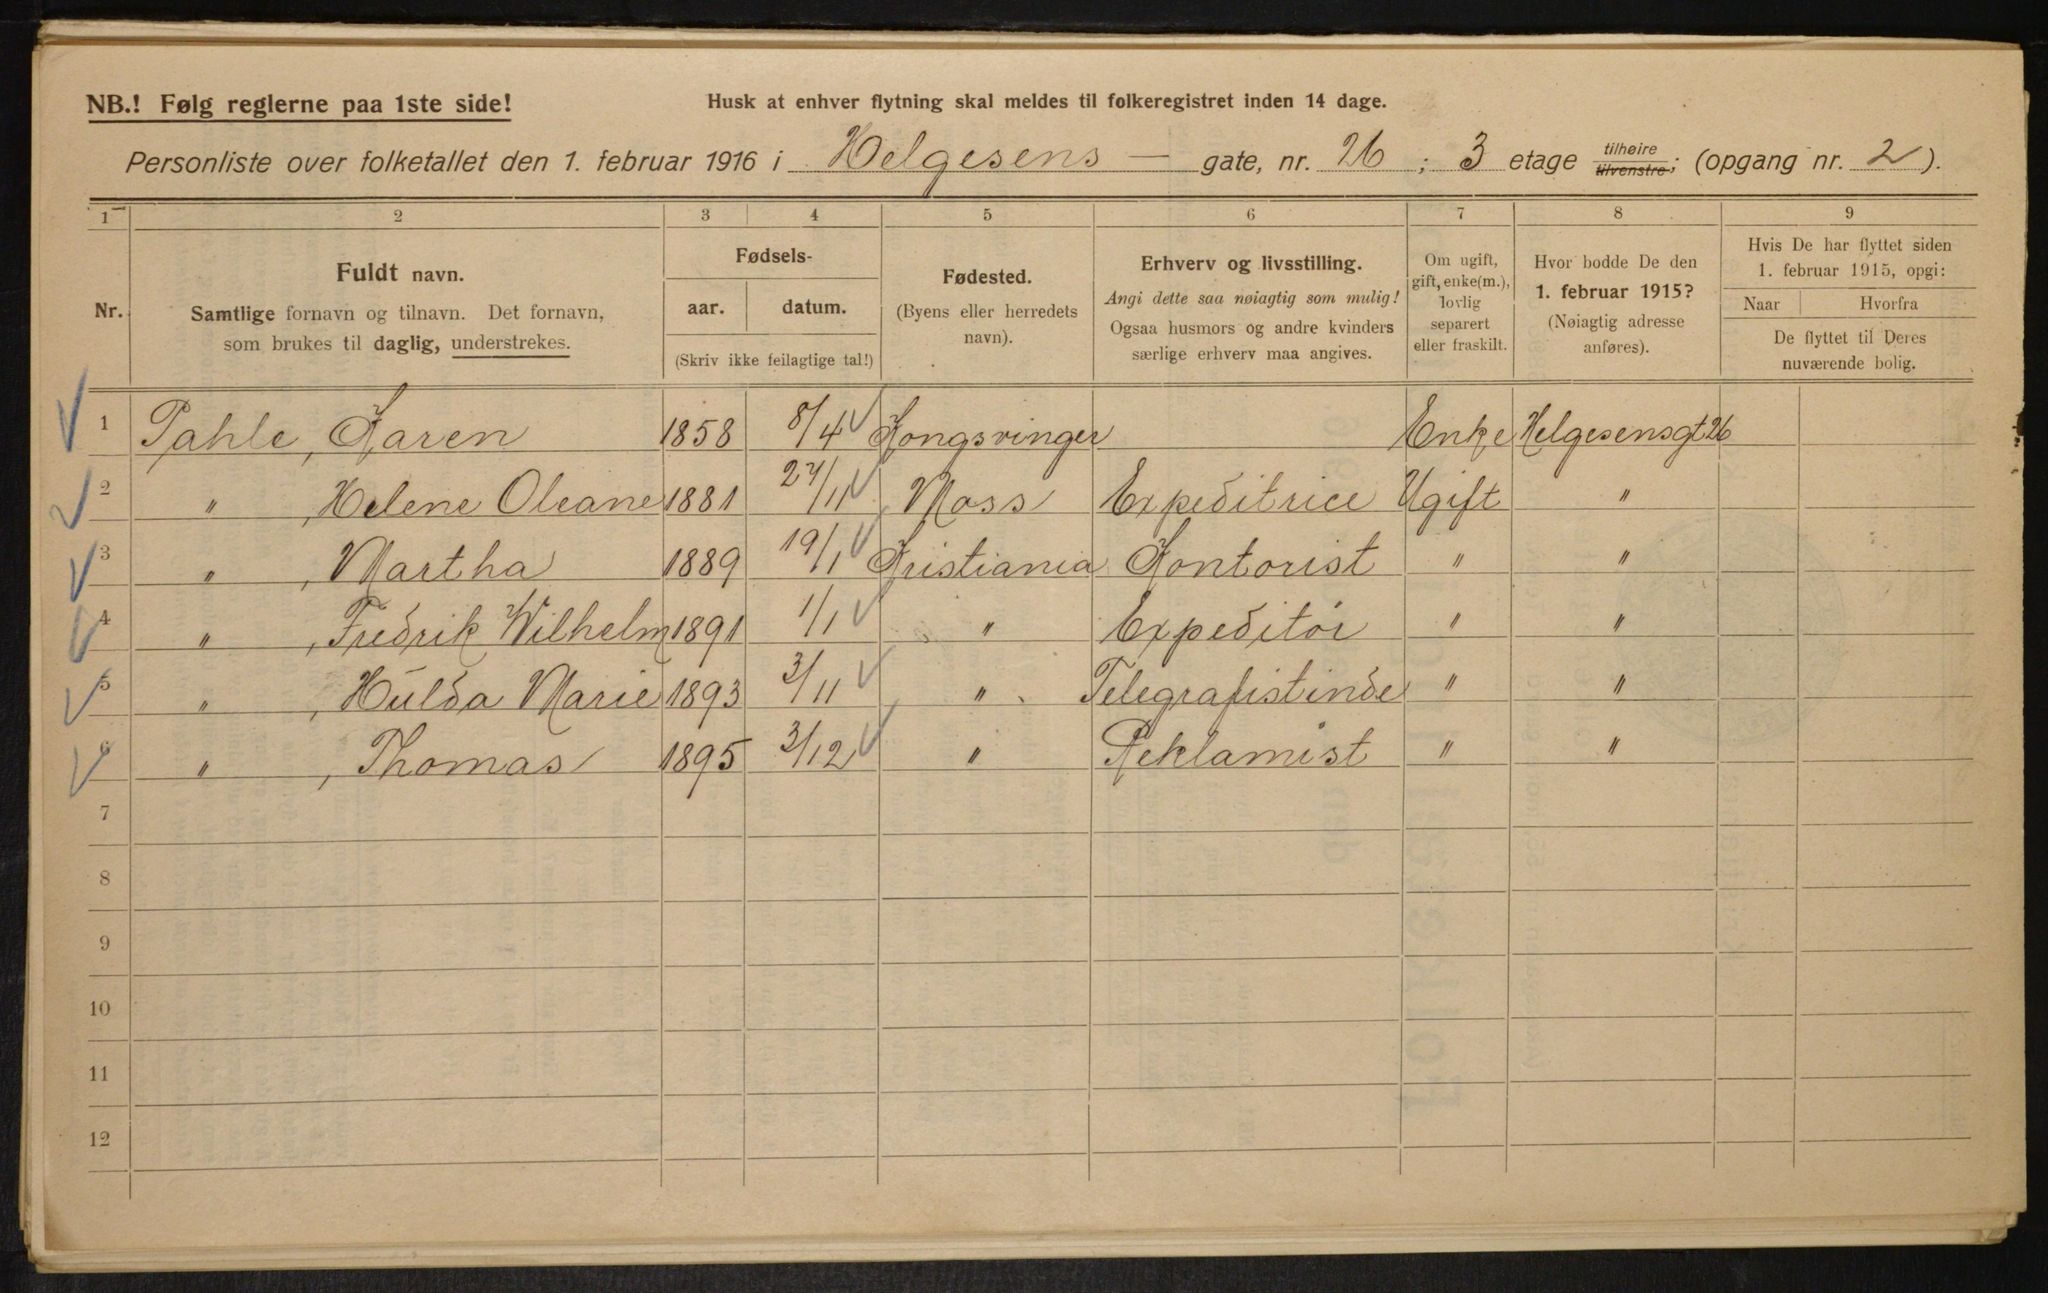 NB.! Følg reglerne paa 1ste side!
Husk at enhver flytning skal meldes til folkeregistret inden 14 dage.
Personliste over folketallet den 1. februar 1916 i Helgesens — gate, nr. 26 ; 3 etage tilhøire tilvenstre; (opgang nr. 2).
1 2 3 4 5 6 7 8 9
Nr.
Fuldt navn.
Samtlige fornavn og tilnavn. Det fornavn,
som brukes til daglig, understrekes.
Fødsels-
aar. datum.
(Skriv ikke feilagtige tal!)
Fødested.
(Byens eller herredets
navn).
Erhverv og livsstilling.
Angi dette saa nøiagtig som mulig!
Ogsaa husmors og andre kvinders
særlige erhverv maa angives.
Om ugift,
gift, enke(m.),
lovlig
separert
eller fraskilt.
Hvor bodde De den
1. februar 1915?
(Nøiagtig adresse
anføres).
Hvis De har flyttet siden
1. februar 1915, opgi:
Naar Hvorfra
De flyttet til Deres
nuværende bolig.
1 Pahle, Karen 1858 8/4 Kongsvinger Enke Helgesensgt 26
2 " , Helene Oleane 1881 /11 Moss Expeditrice Ugift "
3 " , Martha 1889 19/1 Kristiania Kontorist " "
4 " , Fredrik Wilhelm 1891 1/1 " Expeditør " "
5 " , Hulda Marie 1893 3/11 " Telegrafistinde " "
6 " , Thomas 1895 3/12 " Reklamist " "
7
8
9
10
11
12